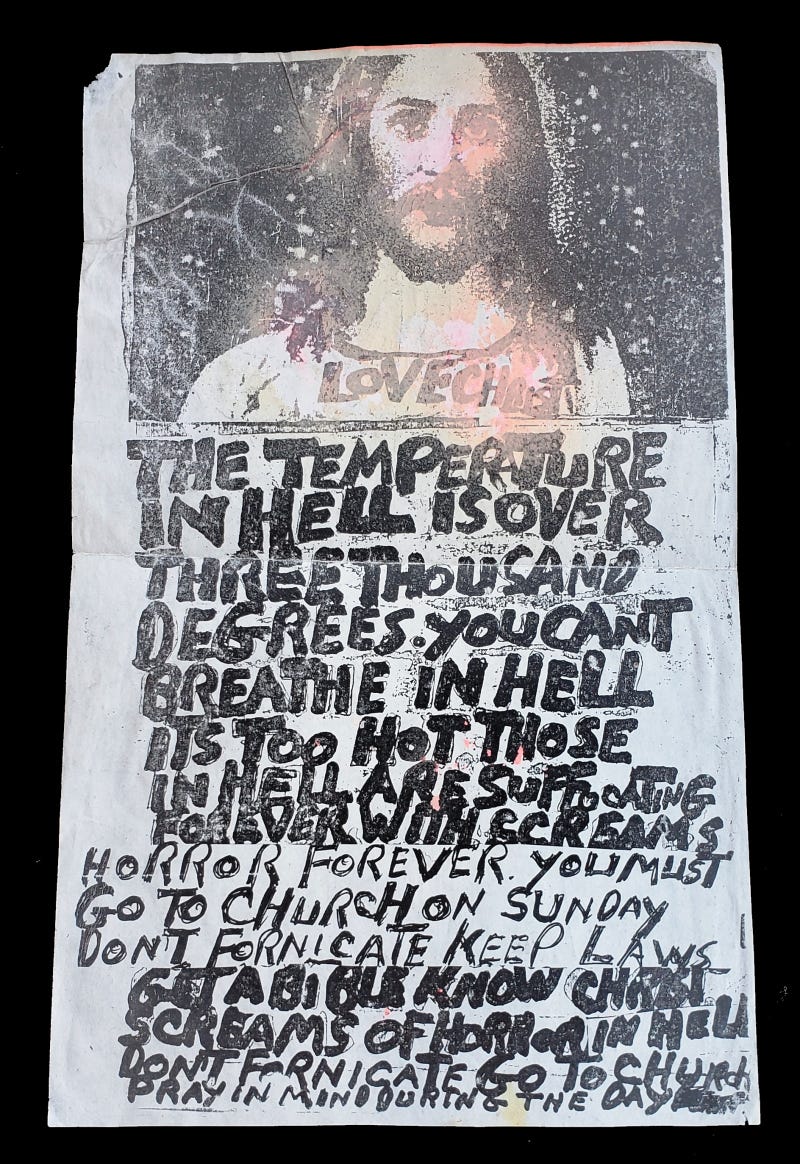 LOVE CHRIST
THE TEMPERATURE
IN HELL IS OVER
THREE THOUSAND
DEGREES. YOU CANT
BREATHE IN HELL
ITS TOO HOT THOSE
IN HELL ARE SUFFOCATING
FOREVER WITH SCREAMS
HORROR FOREVER. YOU MUST
GO TO CHURCH ON SUNDAY
DONT FORNICATE KEEP LAWS
GET A BIBLE KNOW CHRIST
SCREAMS OF HORROR IN HELL
DON'T FORNICATE GO TO CHURCH
PRAY IN MIND DURING THE DAY